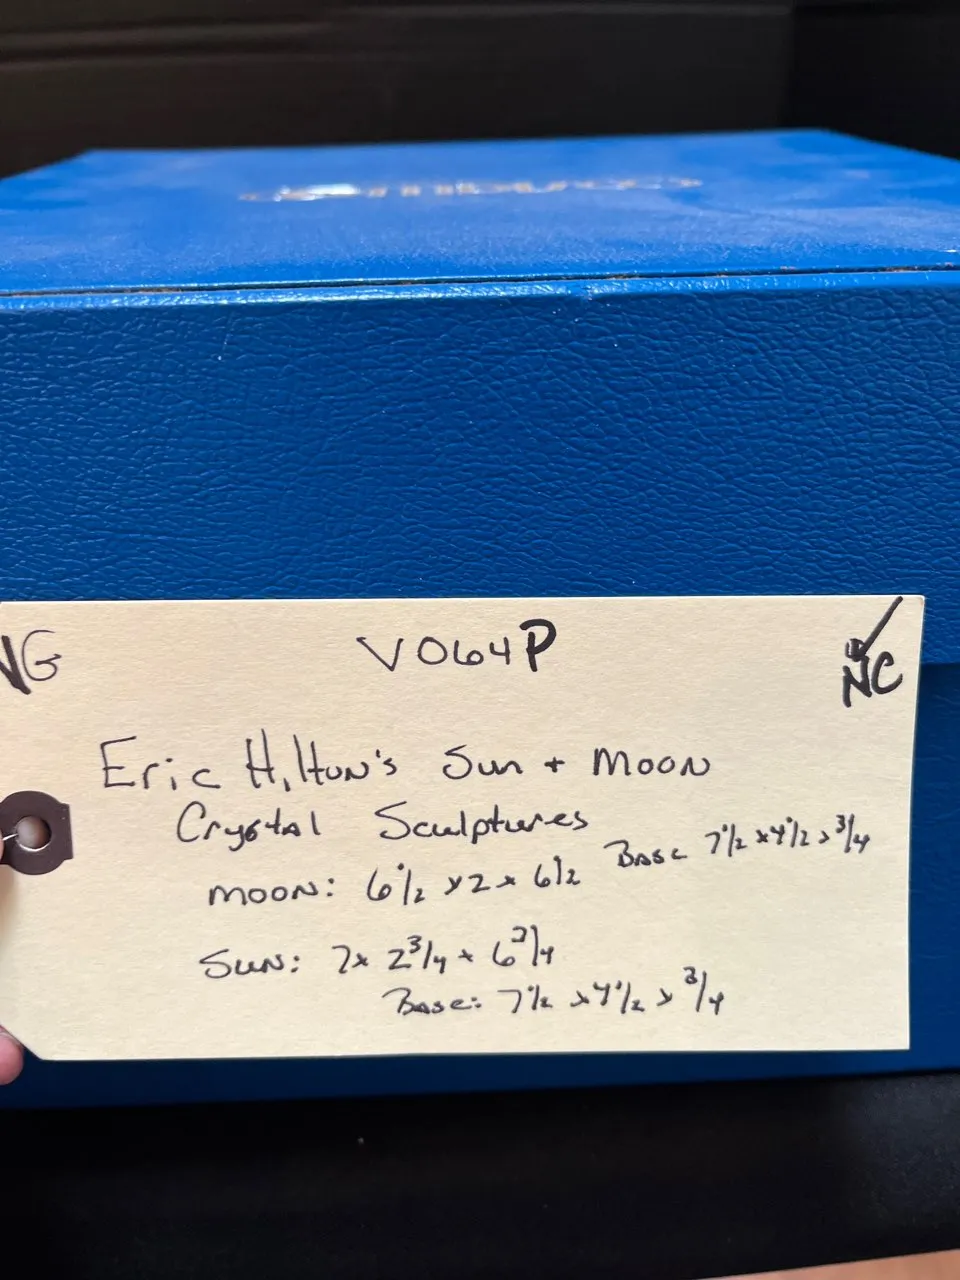 VG V064P NC
Eric Hilton's Sun + Moon
Crystal Sculptures
Moon: 6 1/2 x 2 x 6 1/2 Base 7 1/2 x 4 1/2 x 3/4
Sun: 7 x 2 3/4 x 6 3/4
Base: 7 1/2 x 4 1/2 x 3/4